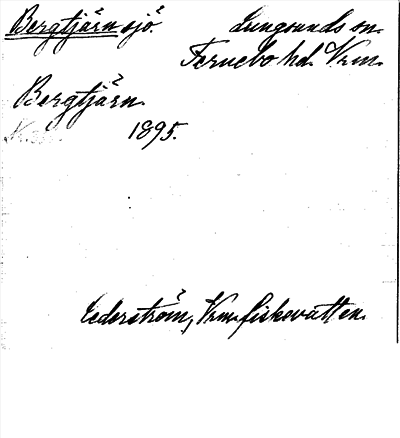 Bergtjärn sjö.
Lungsunds sn.
Fernebo hd. Vrm.
Bergtjärn.
1895.
Cederström, Vrm. fiskevatten.